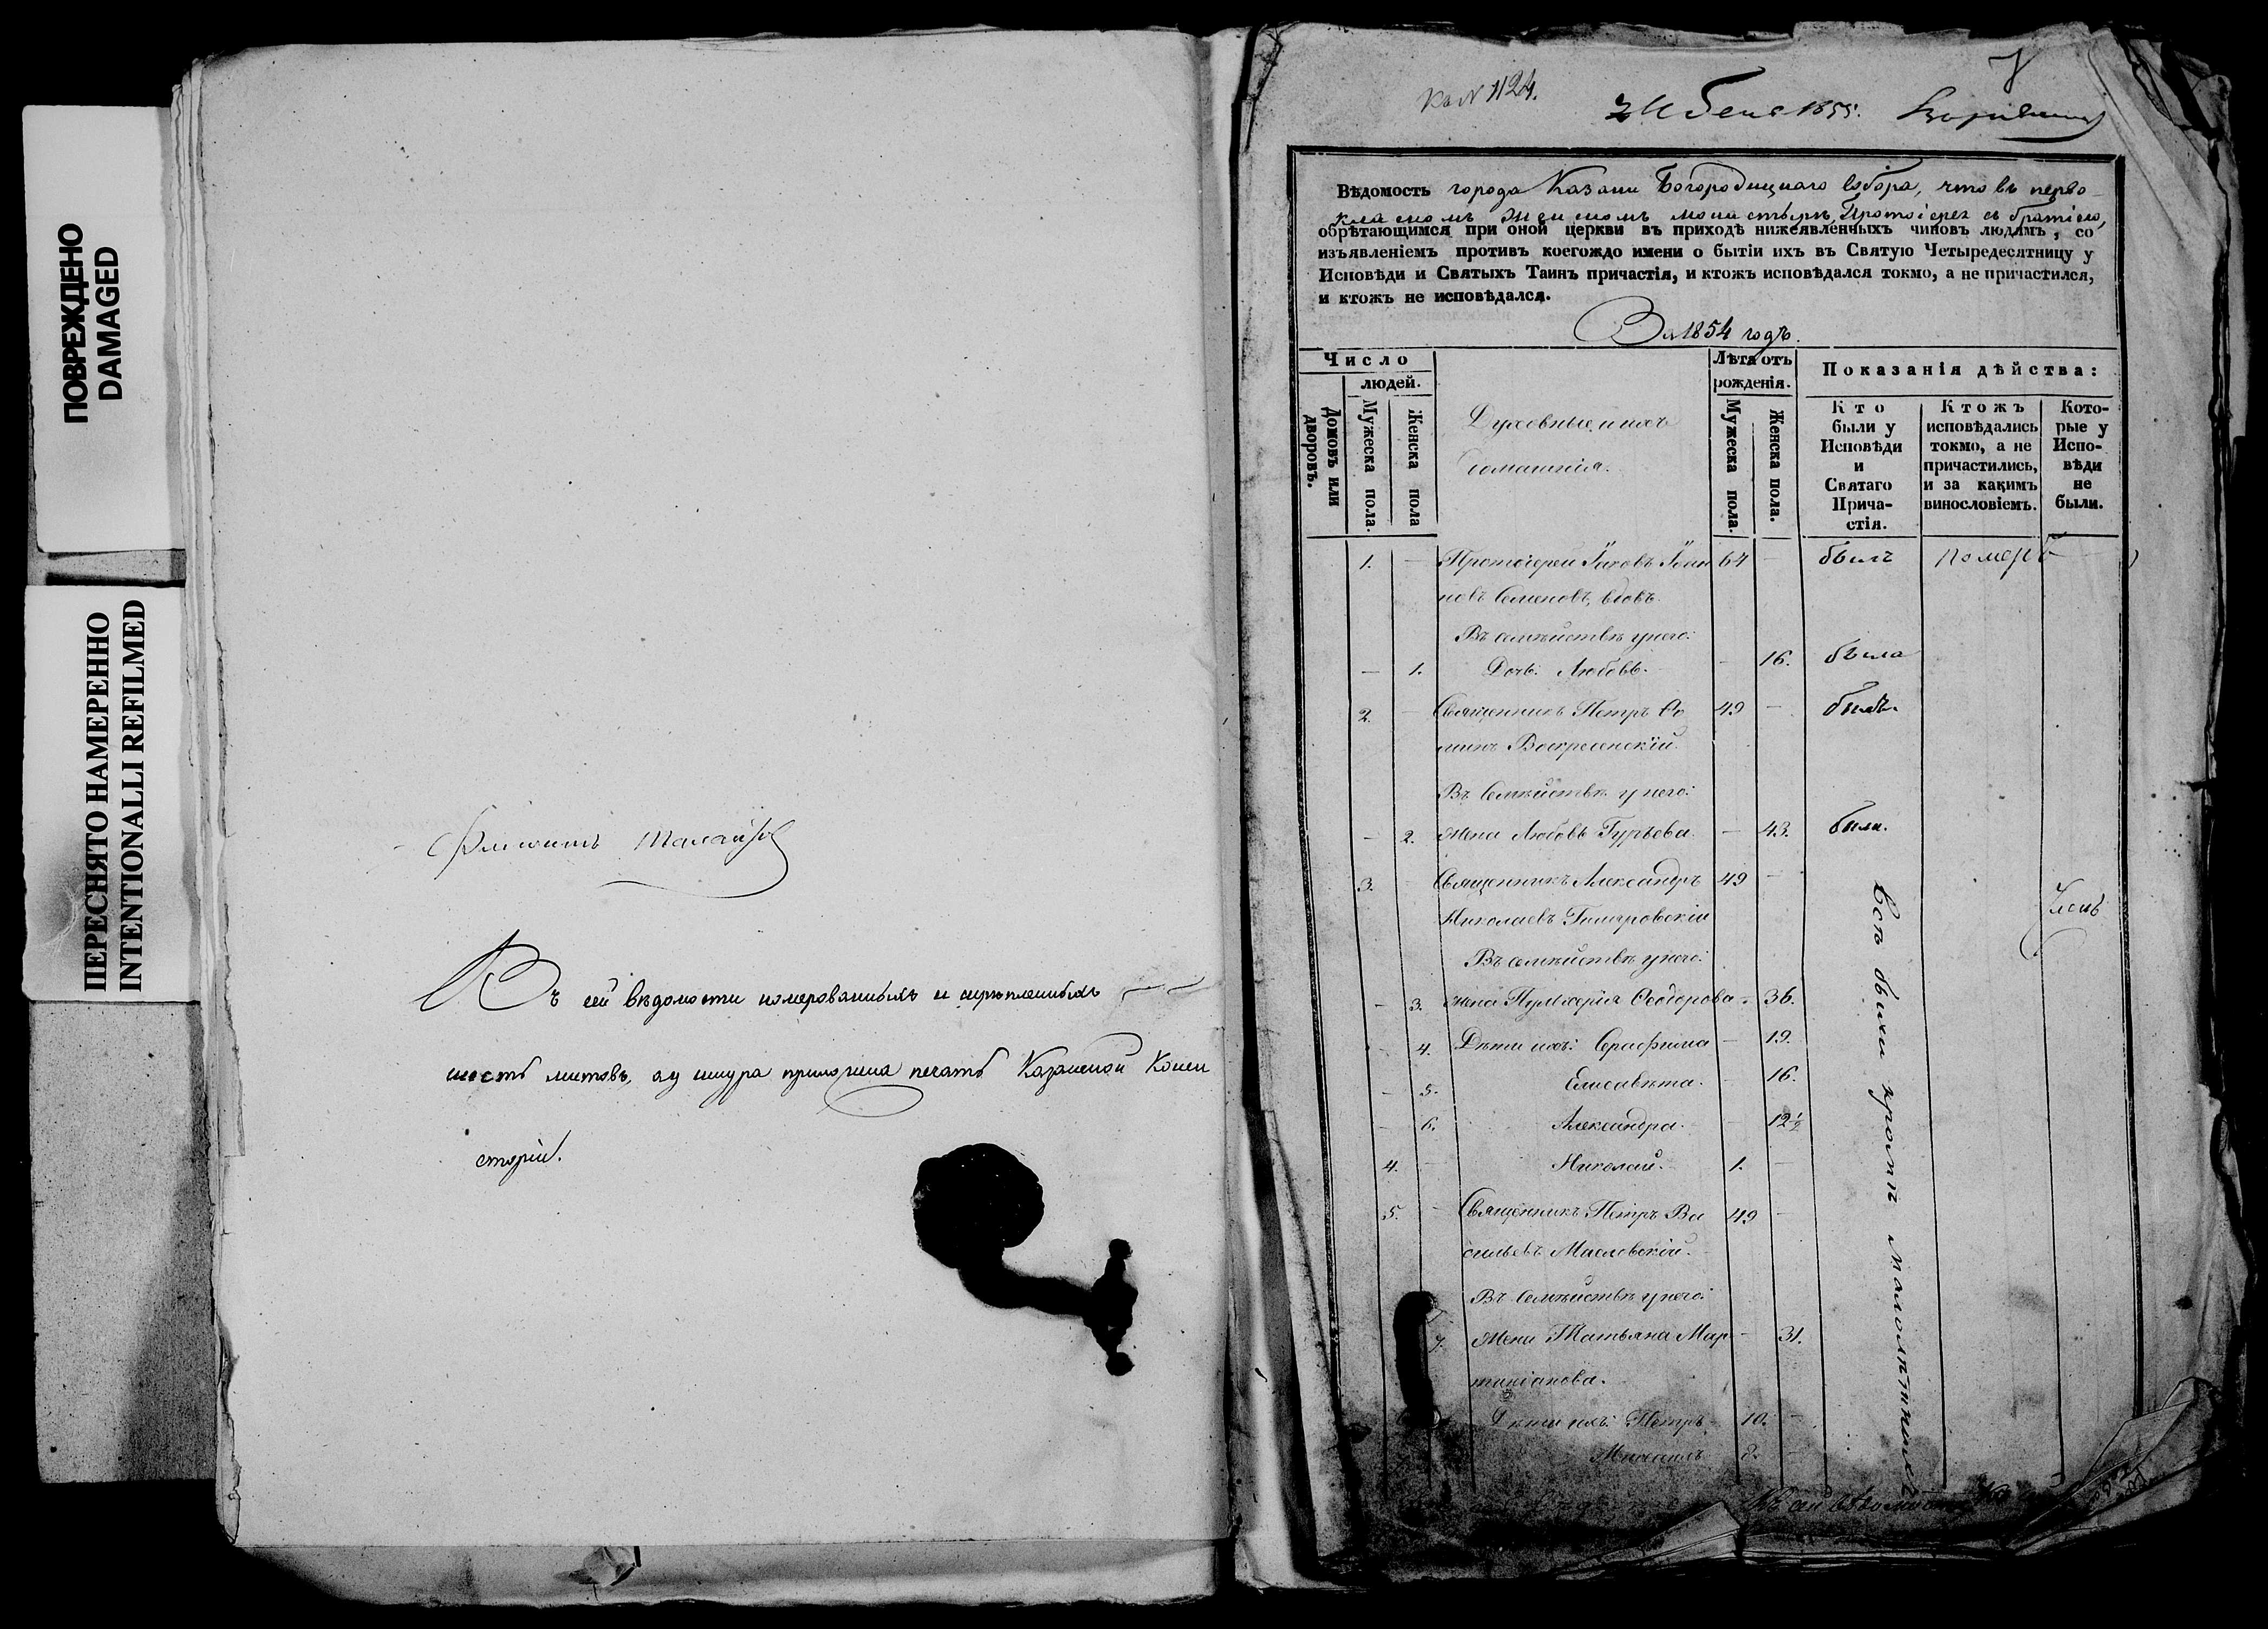 ПОВРЕЖДЕНО
DAMAGED
ПЕРЕСНЯТО НАМЕРЕННО
INTENTIONALLI REFILMED
Въ сей вѣдомости номерованныхъ и скрѣпленныхъ
шесть листовъ, ау шнура приложена печать Казанской Конси
сторіи.
1124.
1855.
Вѣдомость города Казани Богородицкаго собора, что въ перво
класномъ женскомъ монастырѣ, Протоіерея съ братіею,
обрѣтающимся при оной церкви въ приходѣ нижеявленныхъ чиновъ людямъ, со
изъявленіемъ противъ коегождо имени о бытіи ихъ въ Святую Четыредесятницу у
Исповѣди и Святыхъ Таинъ причастія, и ктожъ исповѣдался токмо, а не причастился,
и ктожъ не исповѣдался.
За 1854 годъ.
Число
людей.
Домовъ или дворовъ.
Мужеска пола.
Женска пола
Духовные и ихъ
домашнія.
Лѣта отъ
рожденія.
Мужеска пола.
Женска пола.
Показанія дѣйства:
Кто
были у
Исповѣди
и
Святаго
Прича-
стія.
Ктожъ
исповѣдались
токмо, а не
причастились,
и за какимъ
винословіемъ.
Кото-
рые у
Испо-
вѣди
не
были.
1. — Протоіерей Іаковъ Іоан 64 — былъ померъ
новъ Семеновъ, вдовъ.
Въ семействѣ у него:
— 1. Дочь: Любовь. — 16. была
2. — Священникъ Петръ Ѳо 49 — былъ
минъ Воскресенскій.
Въ Семействѣ у него:
— 2. Жена Любовь Гурьева. — 43. была.
3. — Священникъ Александръ 49 —
Николаевъ Гиляровскій
Въ семействѣ у него:
— 3. Жена Пульхерія Ѳеодорова — 36.
— 4. Дѣти ихъ: Серафима — 19.
— 5. Елисавета. — 16.
— 6. Александра. — 12½
4. — Николай. 1. —
5. — Священникъ Петръ Ва 49 —
сильевъ Масловскій.
Въ Семействѣ у него:
7. Жена Татьяна Мар — 31.
тиніанова.
Дѣти ихъ: Петръ 10. —
Михаилъ 8. —
Всѣ были кромѣ малолѣтнихъ
Къ сей вѣдомости